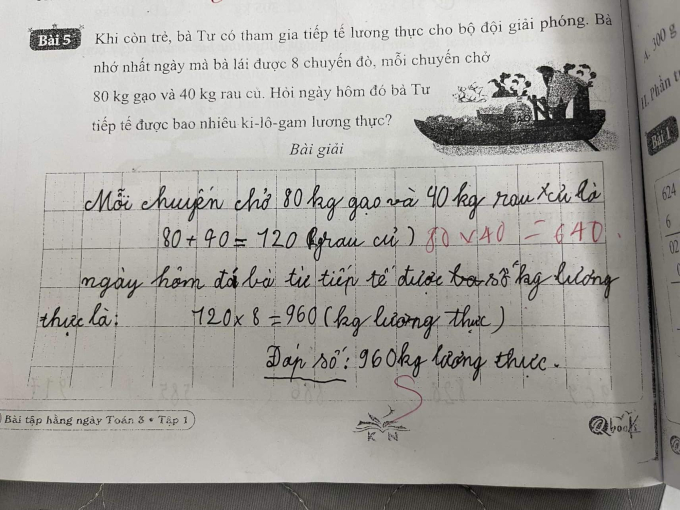 Bài 5 Khi còn trẻ, bà Tư có tham gia tiếp tế lương thực cho bộ đội giải phóng. Bà
nhớ nhất ngày mà bà lái được 8 chuyến đò, mỗi chuyến chở
80 kg gạo và 40 kg rau củ. Hỏi ngày hôm đó bà Tư
tiếp tế được bao nhiêu ki-lô-gam lương thực?
GẠO
Bài giải
Mỗi chuyến chở 80 kg gạo và 40 kg rau củ là
80 + 40 = 120 (grau củ) 80 x 40 = 640
ngày hôm đó bà tư tiếp tế được số kg lương
thực là: 120 x 8 = 960 (kg lương thực)
Đáp số: 960kg lương thực.
S
Bài tập hằng ngày Toán 3 • Tập 1
K N
@book
A. 300 g
II. Phần t
Bài 1
624
6
02
0